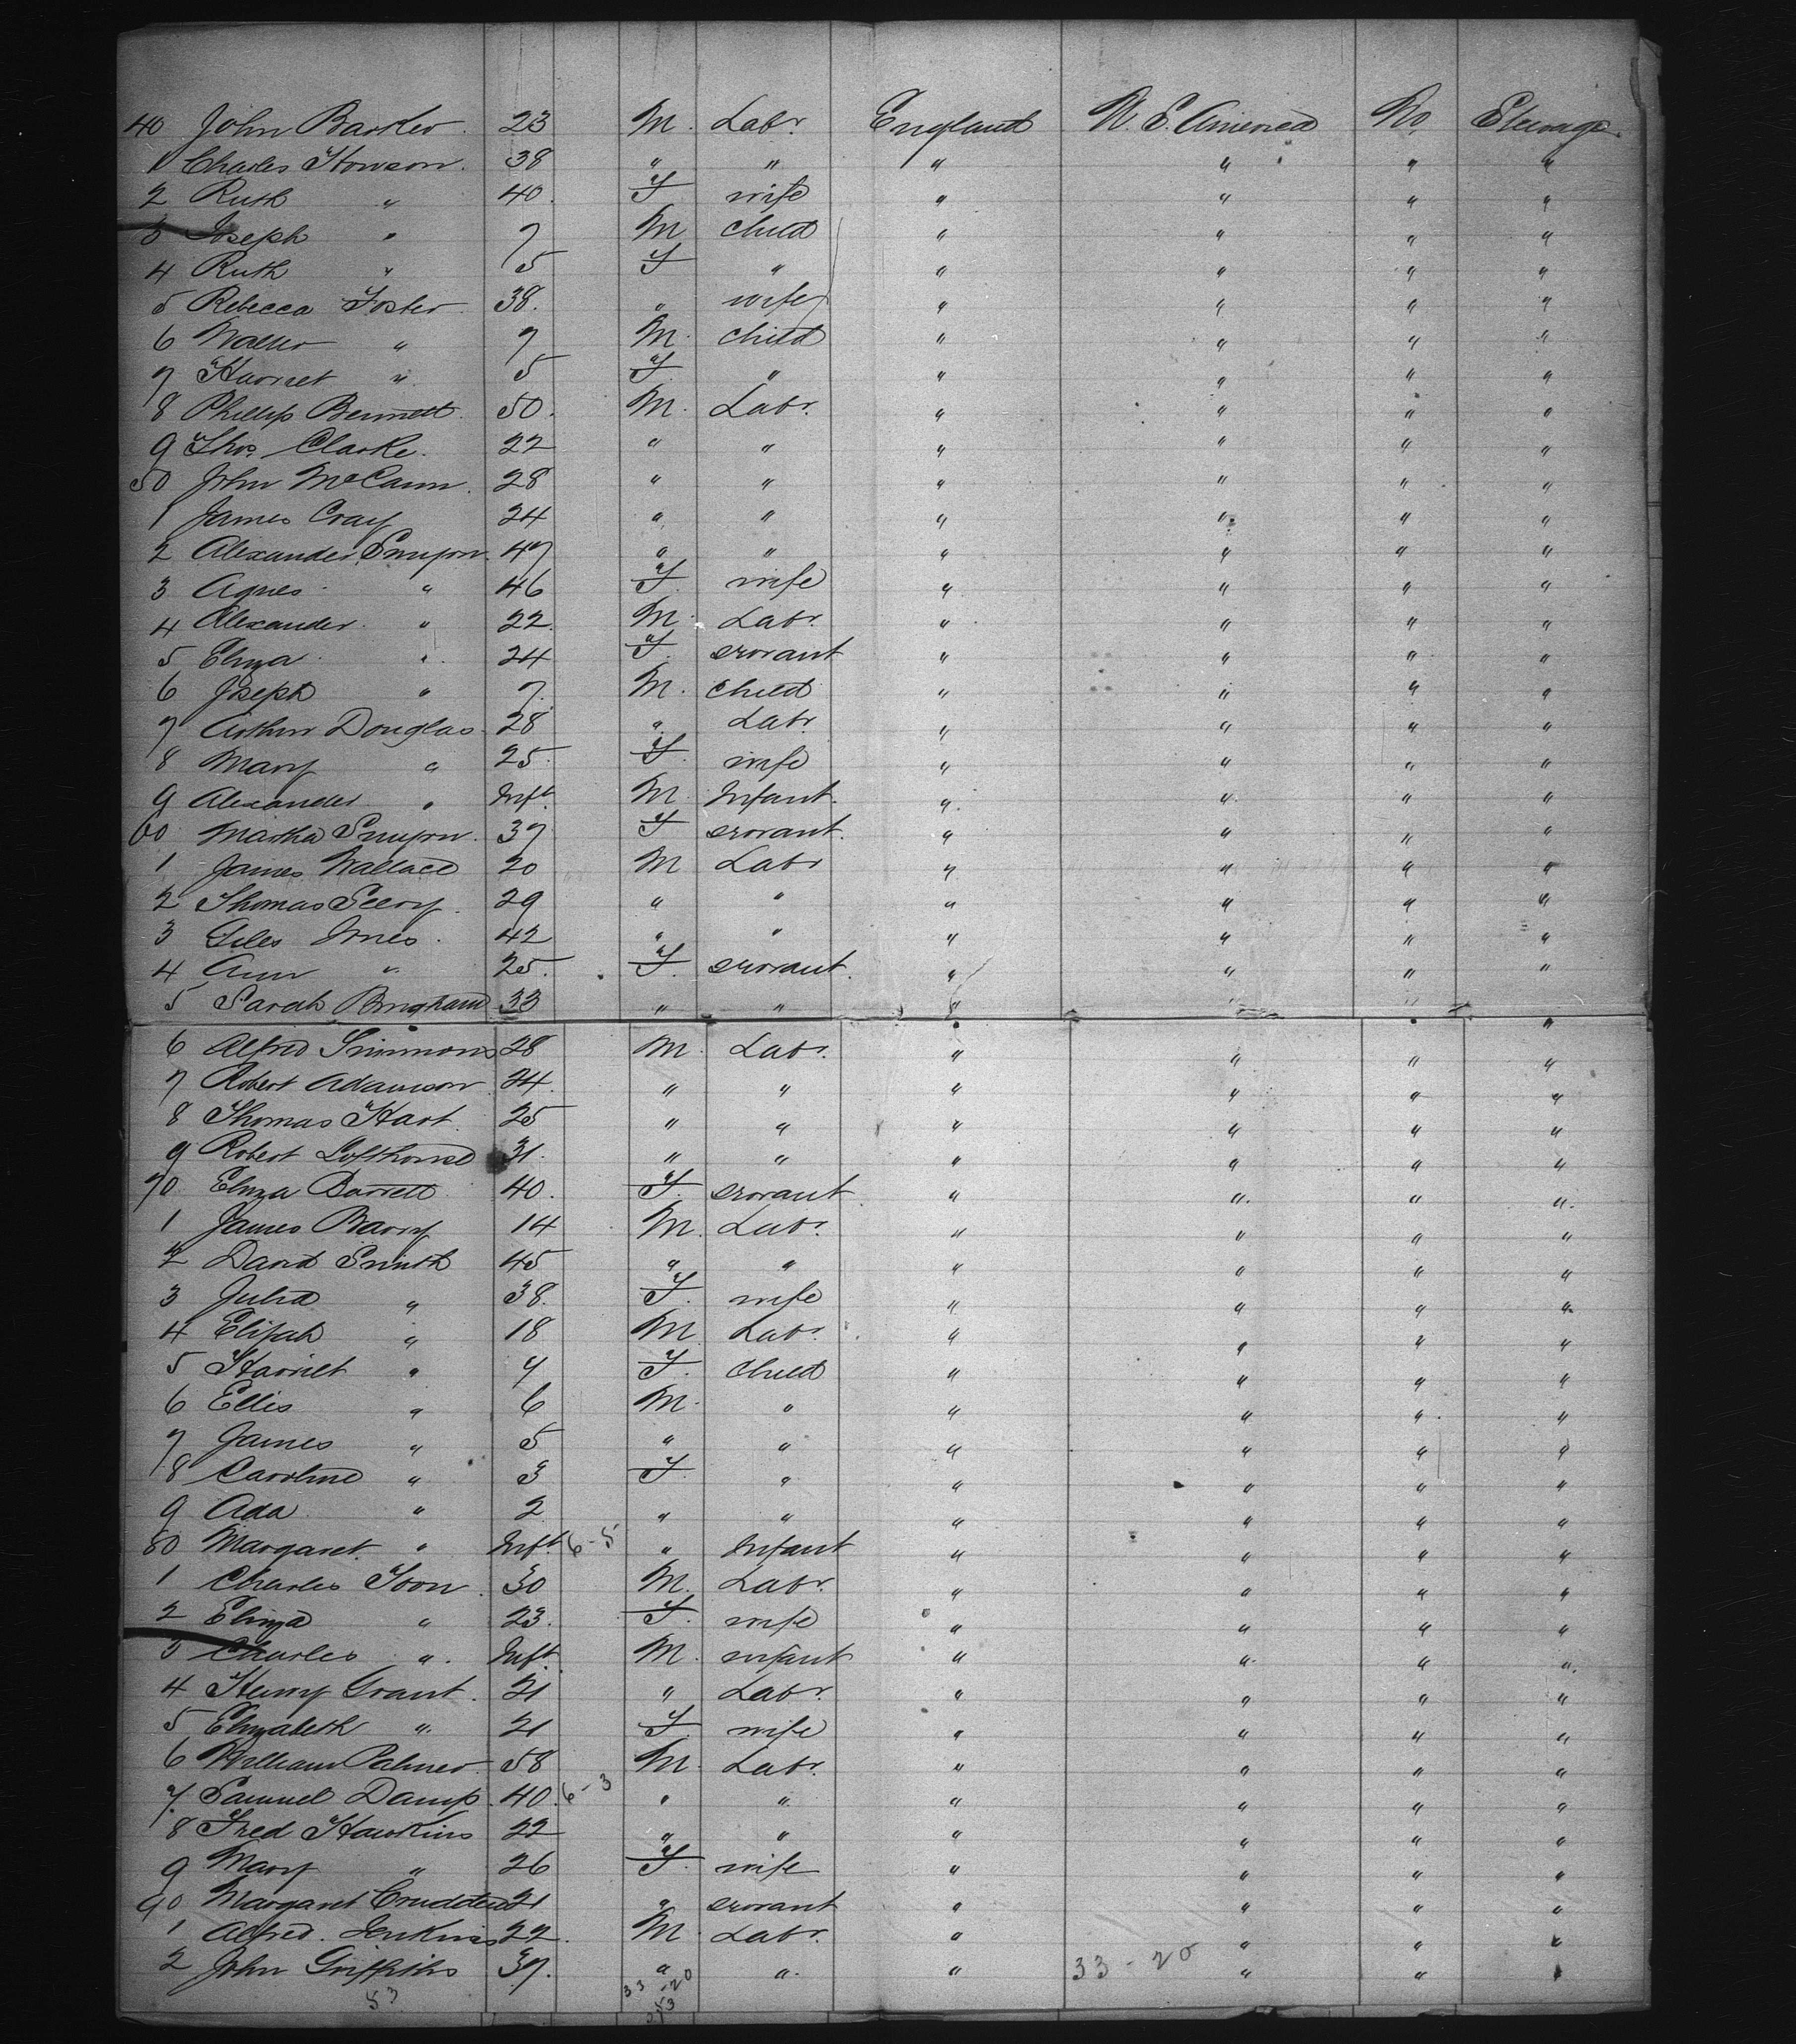 40 John Barker 23 M. Labr. England U. S. America No. Steerage
1 Charles Howson. 38 " " " " " "
2 Ruth " 40. F wife " " " "
3 Joseph " 7 M child " " " "
4 Ruth " 5 F " " " " "
5 Rebecca Foster 38. " wife " " " "
6 Walter " 7 M. child " " " "
7 Harriet " 5 F. " " " " "
8 Phillip Bennett. 50. M. Labr. " " " "
9 Thos. Clarke. 22 " " " " " "
50 John McCann. 28 " " " " " "
1 James Cray 24 " " " " " "
2 Alexander Simpson. 47 " " " " " "
3 Agnes " 46 F. wife " " " "
4 Alexander " 22. M. Labr. " " " "
5 Eliza " 24 F. servant " " " "
6 Joseph " 7. M. child " " " "
7 Arthur Douglas. 28 " Labr " " " "
8 Mary " 25. F. wife " " " "
9 Alexander " Inft. M. Infant. " " " "
60 Martha Simpson. 37 F servant. " " " "
1 James Wallace 20 M Labr " " " "
2 Thomas Seery. 29 " " " " " "
3 Giles Jones. 42 " " " " " "
4 Ann " 25. F. servant. " " " "
5 Sarah Bingham 33 " " " " " "
6 Alfred Simmons 28 M. Labr. " " " "
7 Robert Adamson 24. " " " " " "
8 Thomas Hart. 25 " " " " " "
9 Robert Lofthouse 31. " " " " " "
70 Eliza Barrett 40. F. servant " " " "
1 James Barry 14 M. Labr. " " " "
2 David Smith 45 " " " " " "
3 Julia " 38. F. wife " " " "
4 Elijah " 18 M Labr. " " " "
5 Harriet " 7 F. child " " " "
6 Ellis " 6 M. " " " " "
7 James " 5 " " " " " "
8 Caroline " 3 F. " " " " "
9 Ada " 2 " " " " " "
80 Margaret. " Inft. 6-5 " Infant " " " "
1 Charles Toon. 30 M. Labr. " " " "
2 Eliza " 23. F. wife " " " "
3 Charles " Inft. M. infant " " " "
4 Henry Grant. 21 " Labr. " " " "
5 Elizabeth " 21 F. wife " " " "
6 William Palmer. 58 M. Labr. " " " "
7. Samuel Damp. 40. 6-3 " " " " " "
8 Fred Hawkins 22 " " " " " "
9 Mary " 26 F. wife " " " "
90 Margaret Crudden 21 " servant " " " "
1 Alfred. Jenkins 22. M. Labr. " " " "
2 John Griffiths 37. " " " 33-20 " " "
53 33-20
53